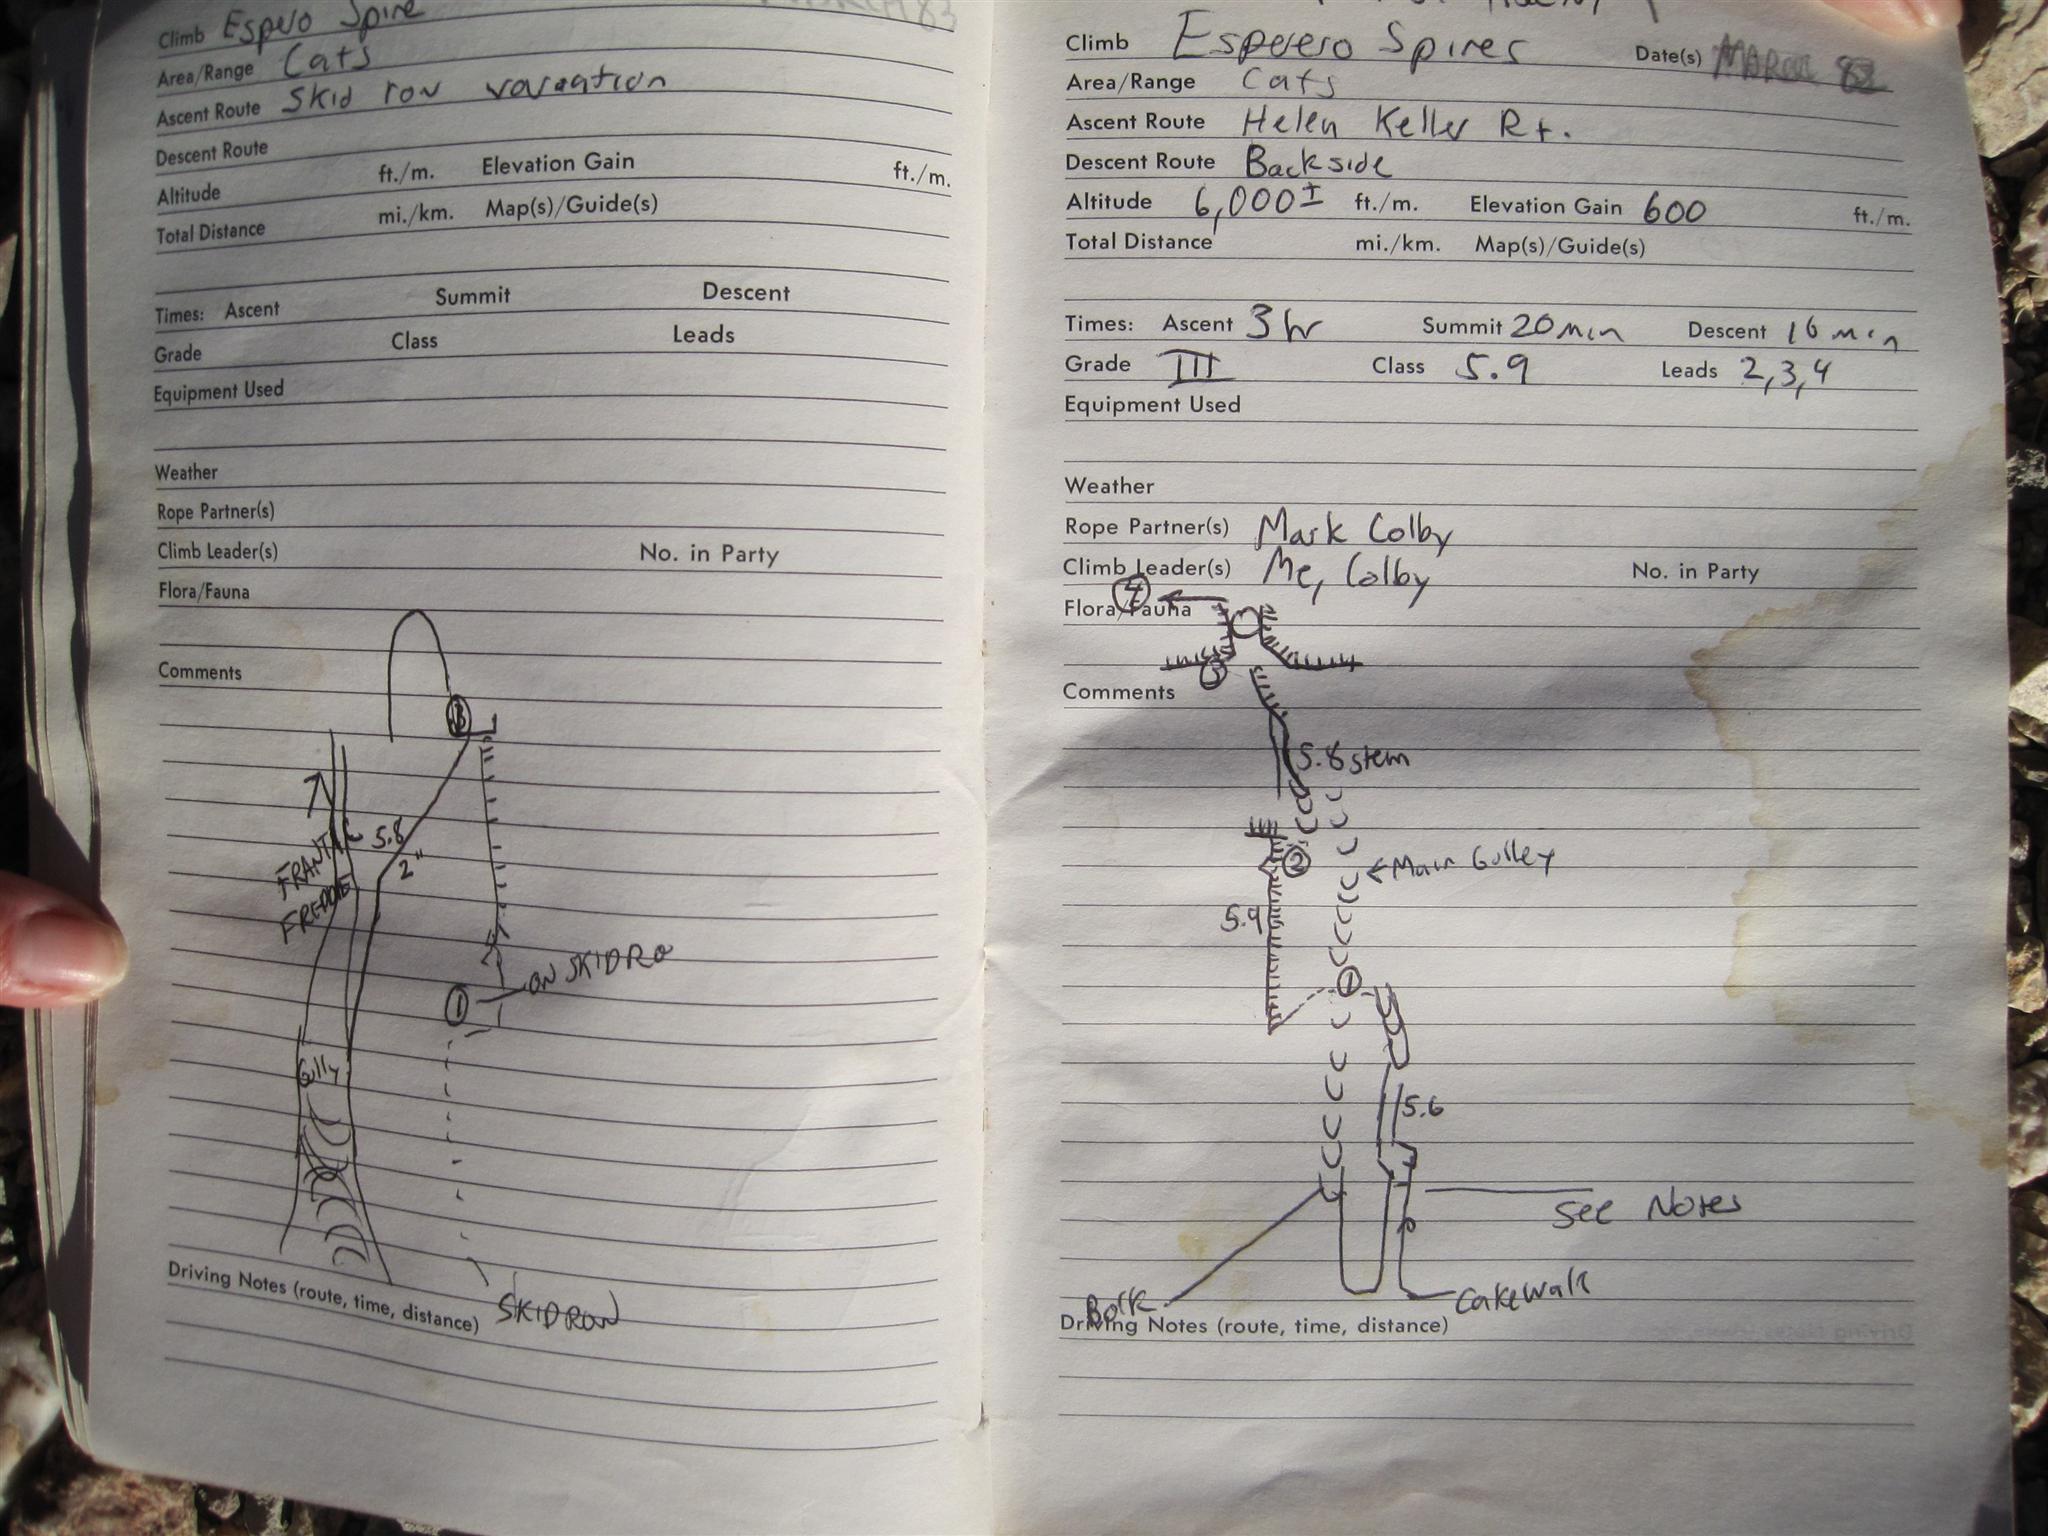 Climb Espero Spire
Area/Range Cats
Ascent Route Skid row vareation
Descent Route
Altitude ft./m. Elevation Gain ft./m.
Total Distance mi./km. Map(s)/Guide(s)
Times: Ascent Summit Descent
Grade Class Leads
Equipment Used
Weather
Rope Partner(s)
Climb Leader(s) No. in Party
Flora/Fauna
Comments
FRANTIC
FREDDIE
5.8
2"
1
ON SKIDRO
Gully
Driving Notes (route, time, distance)
SKIDROW
Climb Esperero Spires Date(s) MARCH
Area/Range Cats
Ascent Route Helen Keller Rt.
Descent Route Backside
Altitude 6,000± ft./m. Elevation Gain 600 ft./m.
Total Distance mi./km. Map(s)/Guide(s)
Times: Ascent 3hr Summit 20min Descent 10 min
Grade III Class 5.9 Leads 2,3,4
Equipment Used
Weather
Rope Partner(s) Mark Colby
Climb Leader(s) Me, Colby No. in Party
4
Flora/Fauna
3
Comments
5.8 stem
2
← Main Gulley
5.9
1
5.6
See Notes
Cakewalk
Driving Notes (route, time, distance)